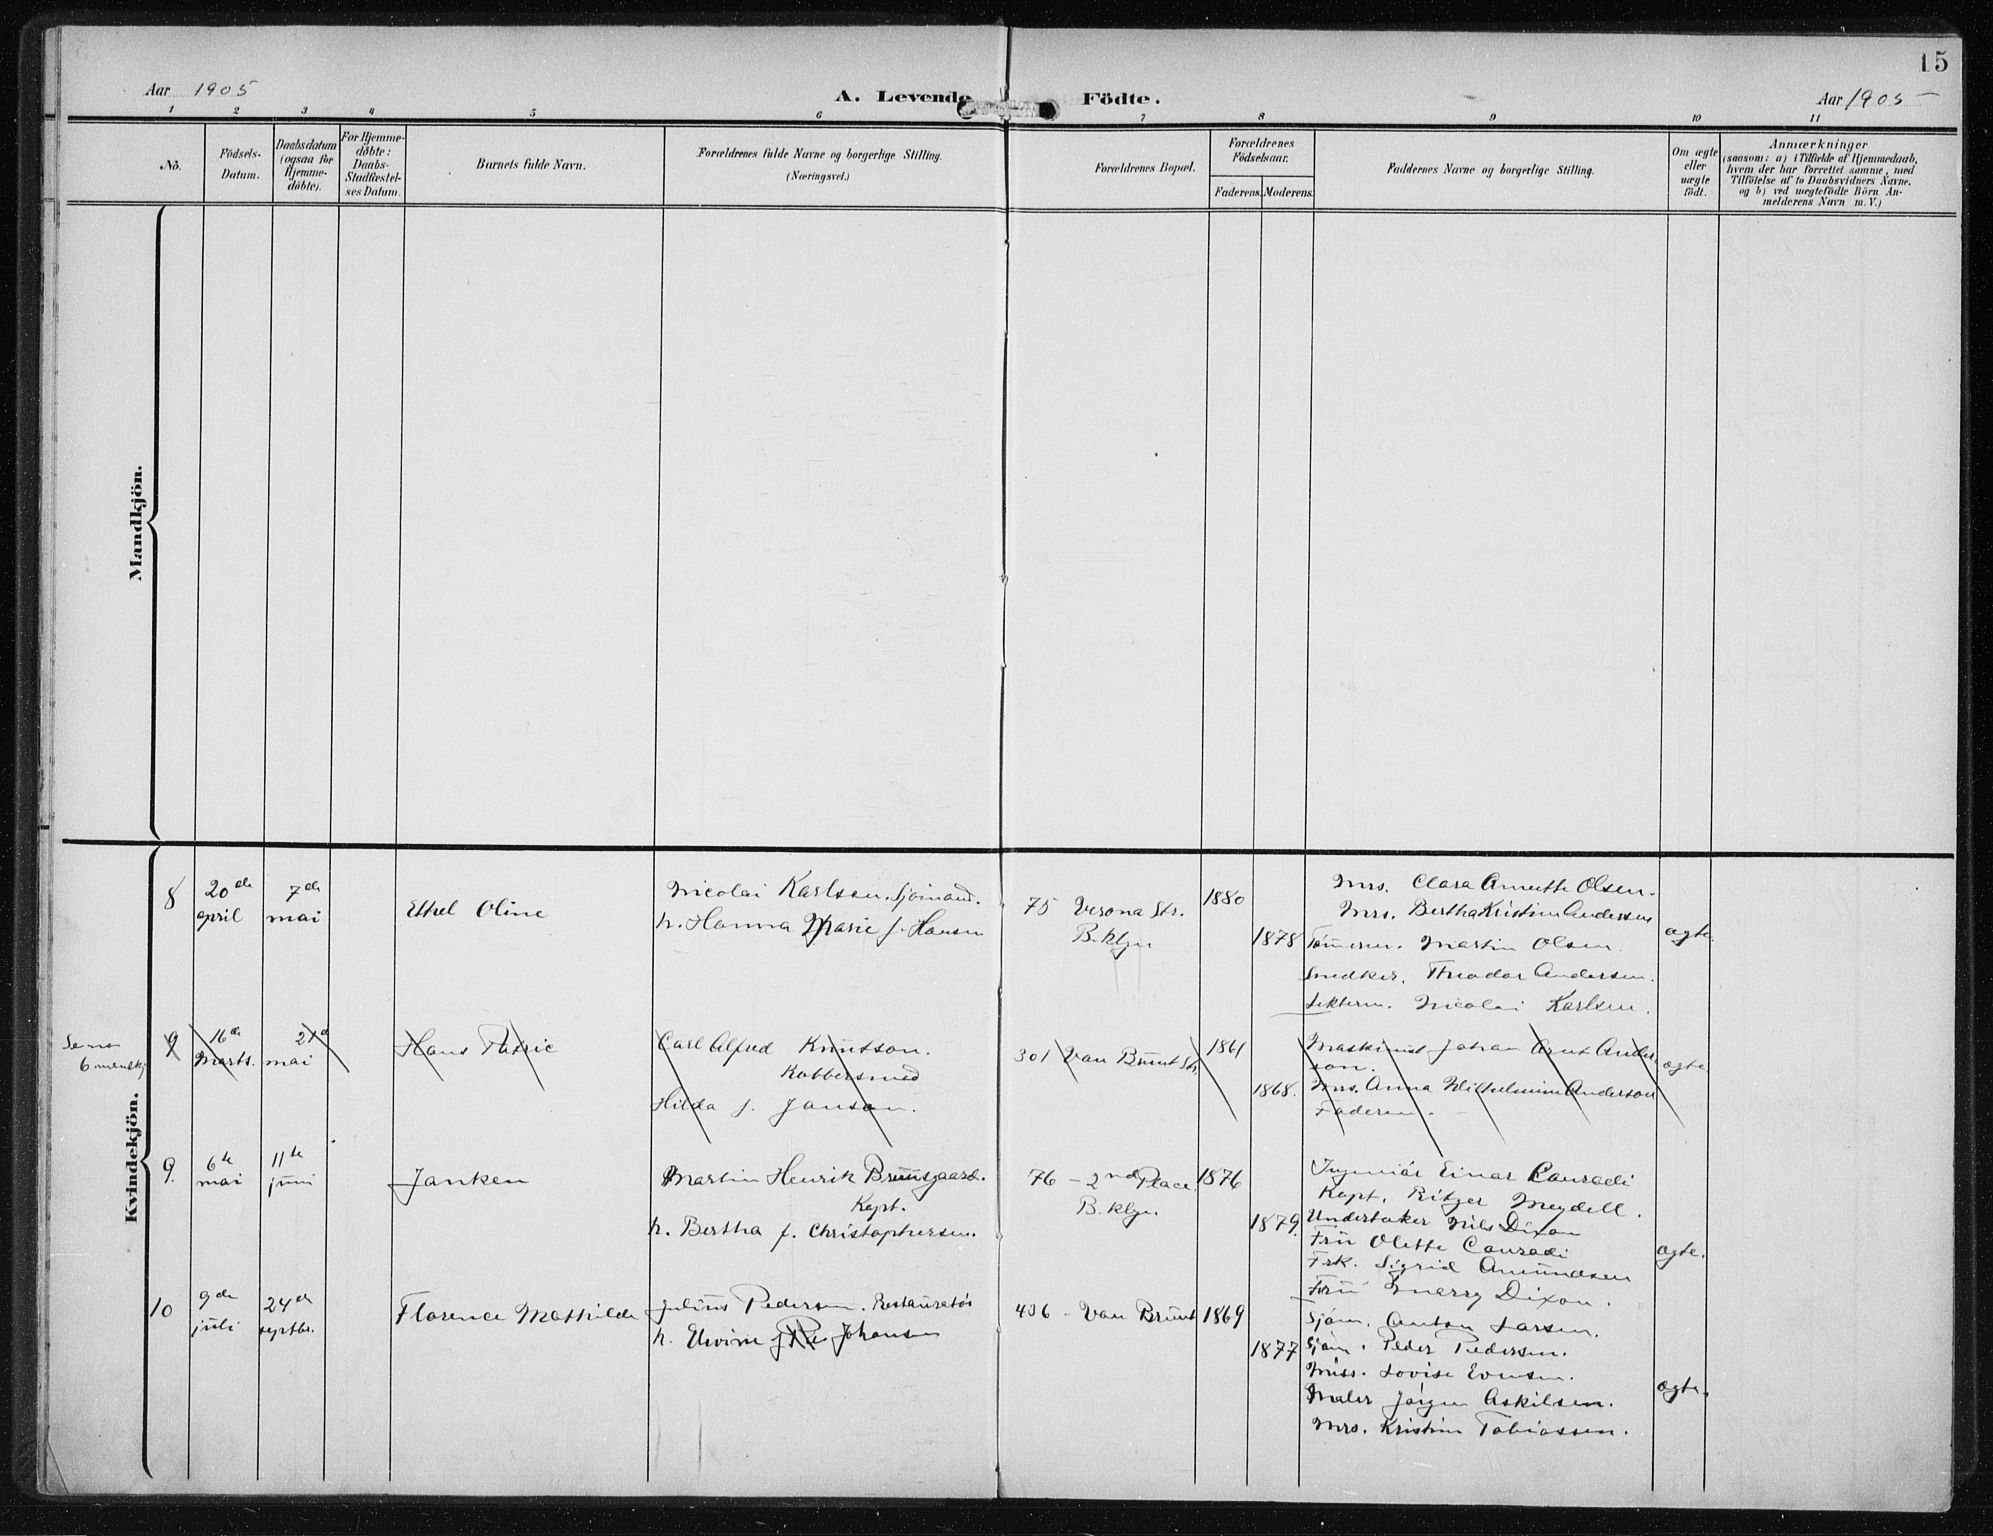 15
Aar 1905
A. Levende Födte.
Aar 1905
1 2 3 4 5 6 7 8 9 10 11
No.
Födsels-
Datum.
Daabsdatum
(ogsaa for
Hjemme-
døbte).
For Hjemme-
døbte:
Daabs-
Stadfæstel-
ses Datum.
Barnets fulde Navn.
Forældrenes fulde Navne og borgerlige Stilling.
(Næringsvei.)
Forældrenes Bopæl.
Forældrenes
Födselsaar.
Faderens. Moderens.
Faddernes Navne og borgerlige Stilling.
Om ægte
eller
uægte
födt.
Anmærkninger
(saasom: a) i Tilfælde af Hjemmedaab,
hvem der har forrettet samme, med
Tilföielse af to Daabsvidners Navne,
og b) ved uægtefödte Börn An-
melderens Navn m. V.)
Mandkjön.
Kvindekjön.
8
20de
april
7de
mai
Ethel Oline
Nicolai Karlsen. Sjømand.
h. Hanna Marie f. Hansen
75 Verona Str.
B.klyn
1880
1878
Mrs. Clara Annette Olsen.
Mrs. Bertha Kristine Andersen
Tømmerm. Martin Olsen.
Snedker. Theodor Andersen.
Nicolai Karlsen.
ægte.
6 mandkj.
9
16de
Marts.
21de
mai
Hans Patric
Carl Alfred Knutson.
Kobbersmed
Hilda f. Janson.
301 Van Brunt Str.
1861
1868.
Maskinist Johan Ander-
son.
Mrs. Anna Wilhelmine Anderson
Faderen.
ægte
9.
6te
mai
11te
juni
Janken
Martin Henrik Bruusgaard.
Kapt.
h. Bertha f. Christophersen.
76 - 2nd Place.
B.klyn.
1876
1879.
Ingeniør Einar Conradi
Kapt. Ritzer Meydell.
Undertaker Nils Dixon
Fru Olette Conradi
Frk. Sigrid Amundsen
Fru Dixon.
ægte.
10
9de
juli
24de
septbr.
Florence Mathilde
Julius Pedersen. Restauratør
h. Elvine f. Johansen
436 - Van Brunt
1869
1877
Sjøm. Anton Larsen.
Sjøm. Peder Pedersen.
Miss. Lovise Evensen.
Maler Jørgen Askilsen.
Mrs. Kristine Tobiassen.
ægte.